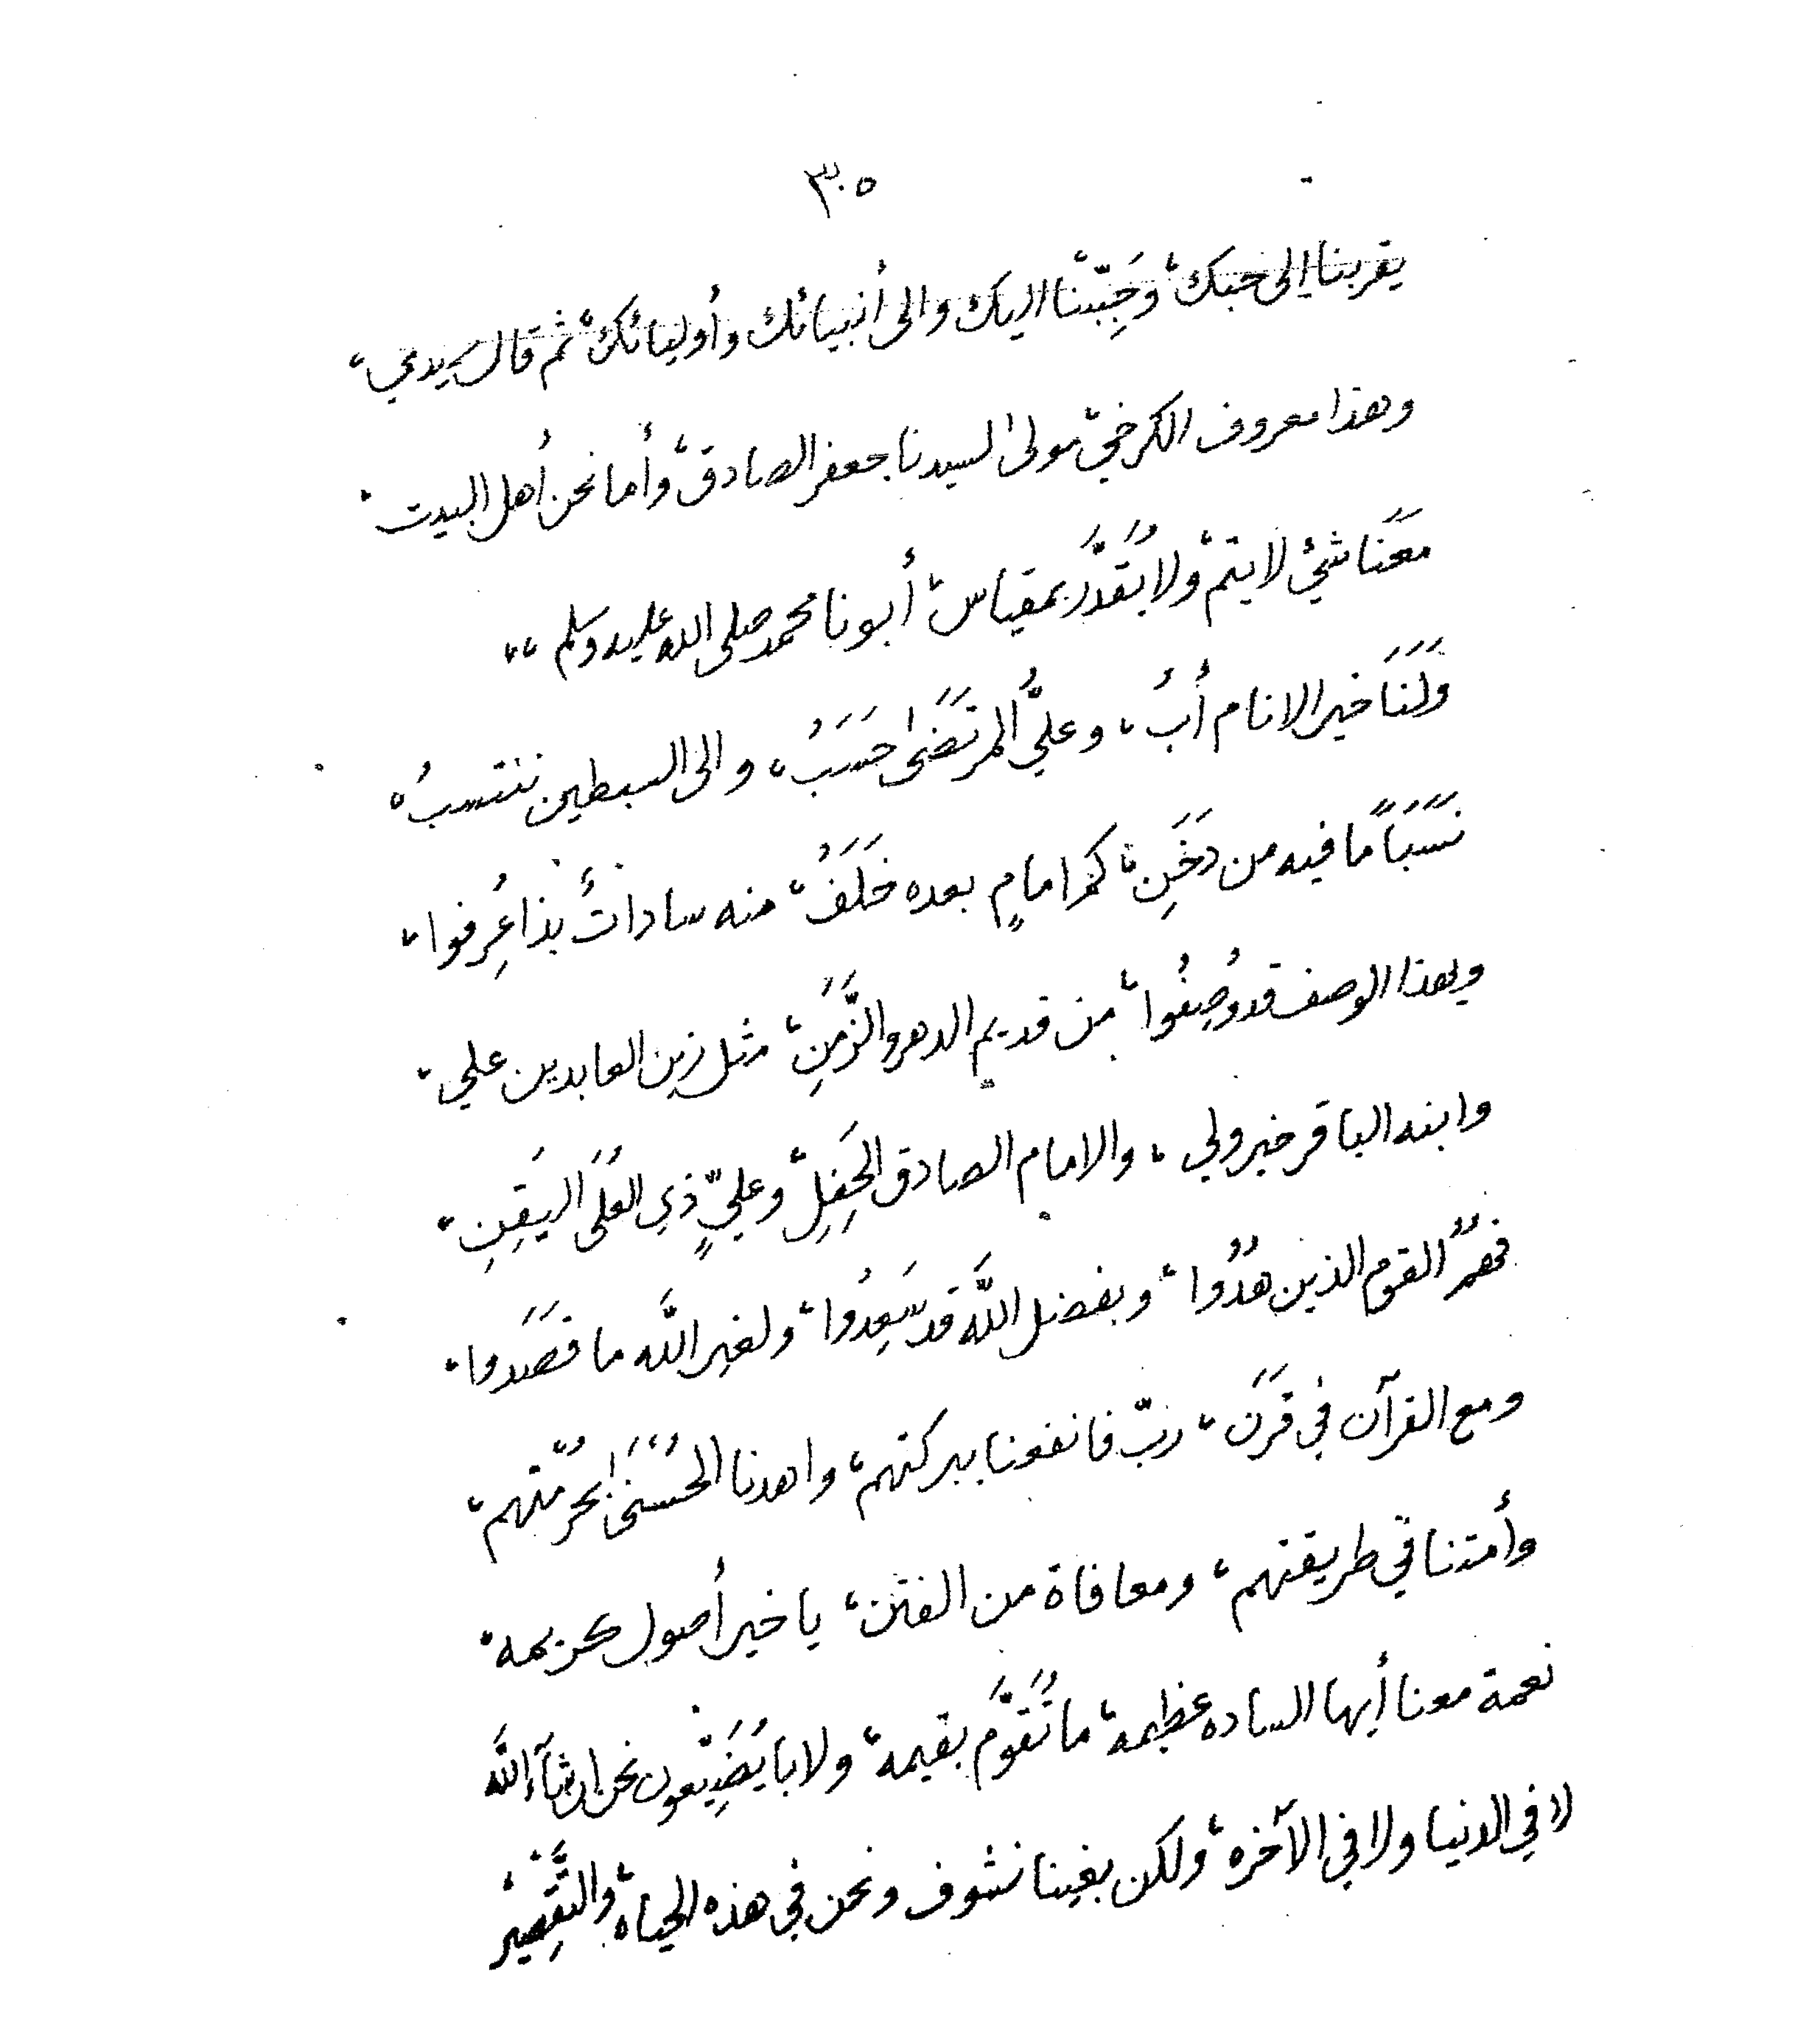 ٣٠٥
يقربنا إلى حبك، وحَبِّبنا اليك والى أنبيائك وأوليائك، ثم قال سيدي،
وهذا معروف الكرخي، مولىٰ لسيدنا جعفر الصادق، وأما نحن أهل البيت،
معَنَا شيءْ لا يتم، ولا يُقَدَّر بمقياس، أبونا محمد صلى الله عليه وسلم،،
وَلَنَا خير الانام أبُ، وعليُّ المرتَضَىٰ حَسَبُ، والى السبطين ننتسبُ،
نَسَبَاً ما فيه من دَخَنِ، كم امامٍ بعده خَلَفُ، منه ساداتٌ بذا عُرِفوا،
وبهذا الوصف قد وُصِفُوا، من قديم الدهر والزَّمَنِ، مثل زين العابدين علي،
وابنه الباقر خير ولي، والامام الصادق الحَفِلِ، وعليٍّ ذي العُلَى اليَقِنِ،
فهمُ القوم الذين هُدُوا، وبفضل اللَّه قد سَعِدُوا، ولغير اللَّه ما قصَدَوا،
ومع القرآن في قَرَنَ، ربّ فانفعنا ببركتهم، واهدنا الحُسْنَىٰ بحُرمتهم،
وأمتنا في طريقتهم، ومعافاة من الفتن، يا خير أصول كريمه،
نعمة معنا أيها الساده عظيمه، ما تُقَوَّم بقيمه، ولا با يُضَيِّعون نحن ان شآء اللَّه
لا في الدنيا ولا في الآخره، ولكن بغينا نشوف ونحن في هذه الحياه، والتَّقْصِيرْ